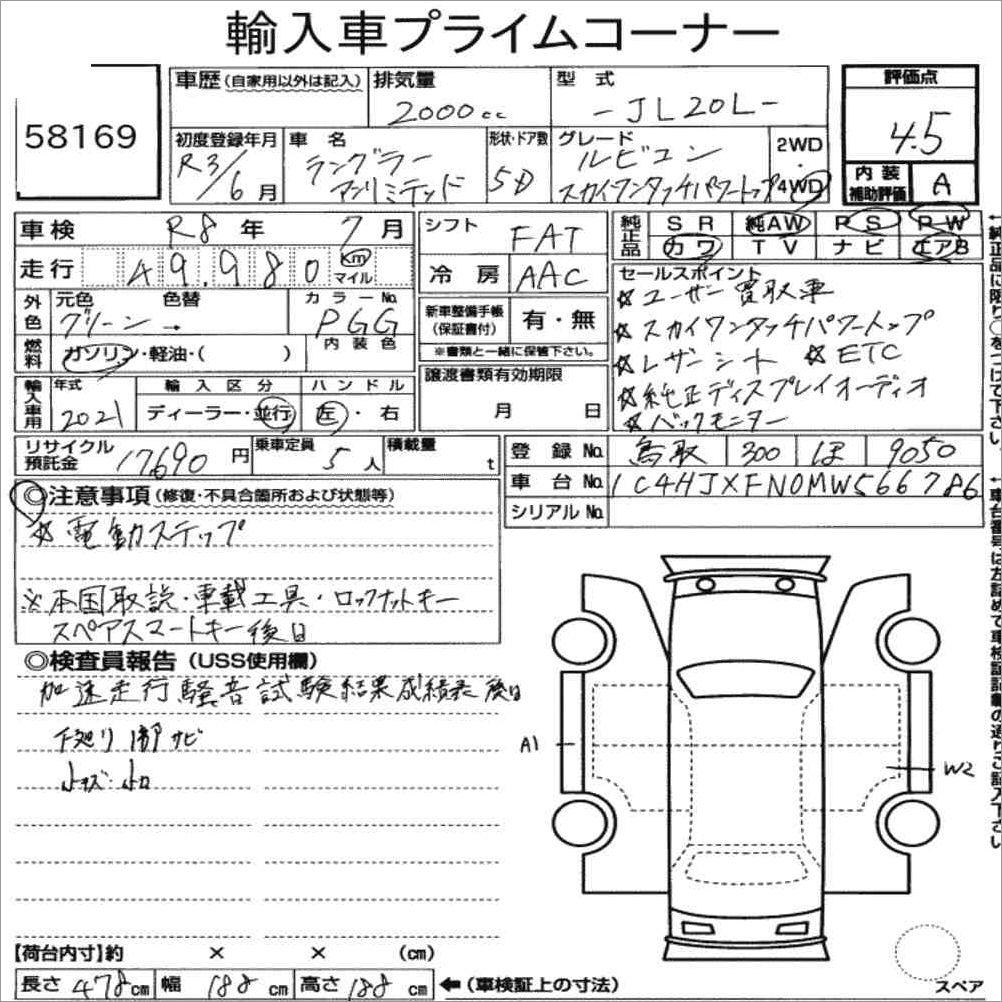 輸入車プライムコーナー
58169
車歴(自家用以外は記入) 排気量 2000cc 型式 -JL20L- 評価点 4.5
初度登録年月 R3/6月 車名 ラングラー アンリミテッド 形状・ドア数 5D グレード ルビコン スカイワンタッチパワートップ 2WD・4WD 内装補助評価 A
車検 R8年 7月 シフト FAT 純正品 SR 純AW PS PW
カワ TV ナビ エアB
走行 49.980 km マイル 冷房 AAC
セールスポイント
☆ユーザー買取車
☆スカイワンタッチパワートップ
☆レザーシート ☆ETC
☆純正ディスプレイオーディオ
☆バックモニター
外色 元色 グリーン → 色替 カラーNo. PGG
内装色
新車整備手帳(保証書付) 有・無
※書類と一緒に保管下さい。
燃料 ガソリン・軽油・( )
輸入車用 年式 2021 輸入区分 ディーラー・並行 ハンドル 左・右
譲渡書類有効期限
月 日
リサイクル預託金 17690円 乗車定員 5人 積載量 t
登録No. 鳥取 300 ほ 9050
車台No. 1C4HJXFN0MW566786
シリアルNo.
◎注意事項(修復・不具合箇所および状態等)
☆電動ステップ
※本国取説・車載工具・ロックナットキー
スペアスマートキー後日
◎検査員報告(USS使用欄)
加速走行騒音試験結果成績表後日
下廻り1部サビ
小キズ・小凹
A1
W2
【荷台内寸】約 × × (cm)
長さ 478cm 幅 188cm 高さ 188cm ←(車検証上の寸法)
スペア
↑純正品に限り○をつけて下さい。
↑車台番号は左詰めで車検証記載の通りご記入下さい。